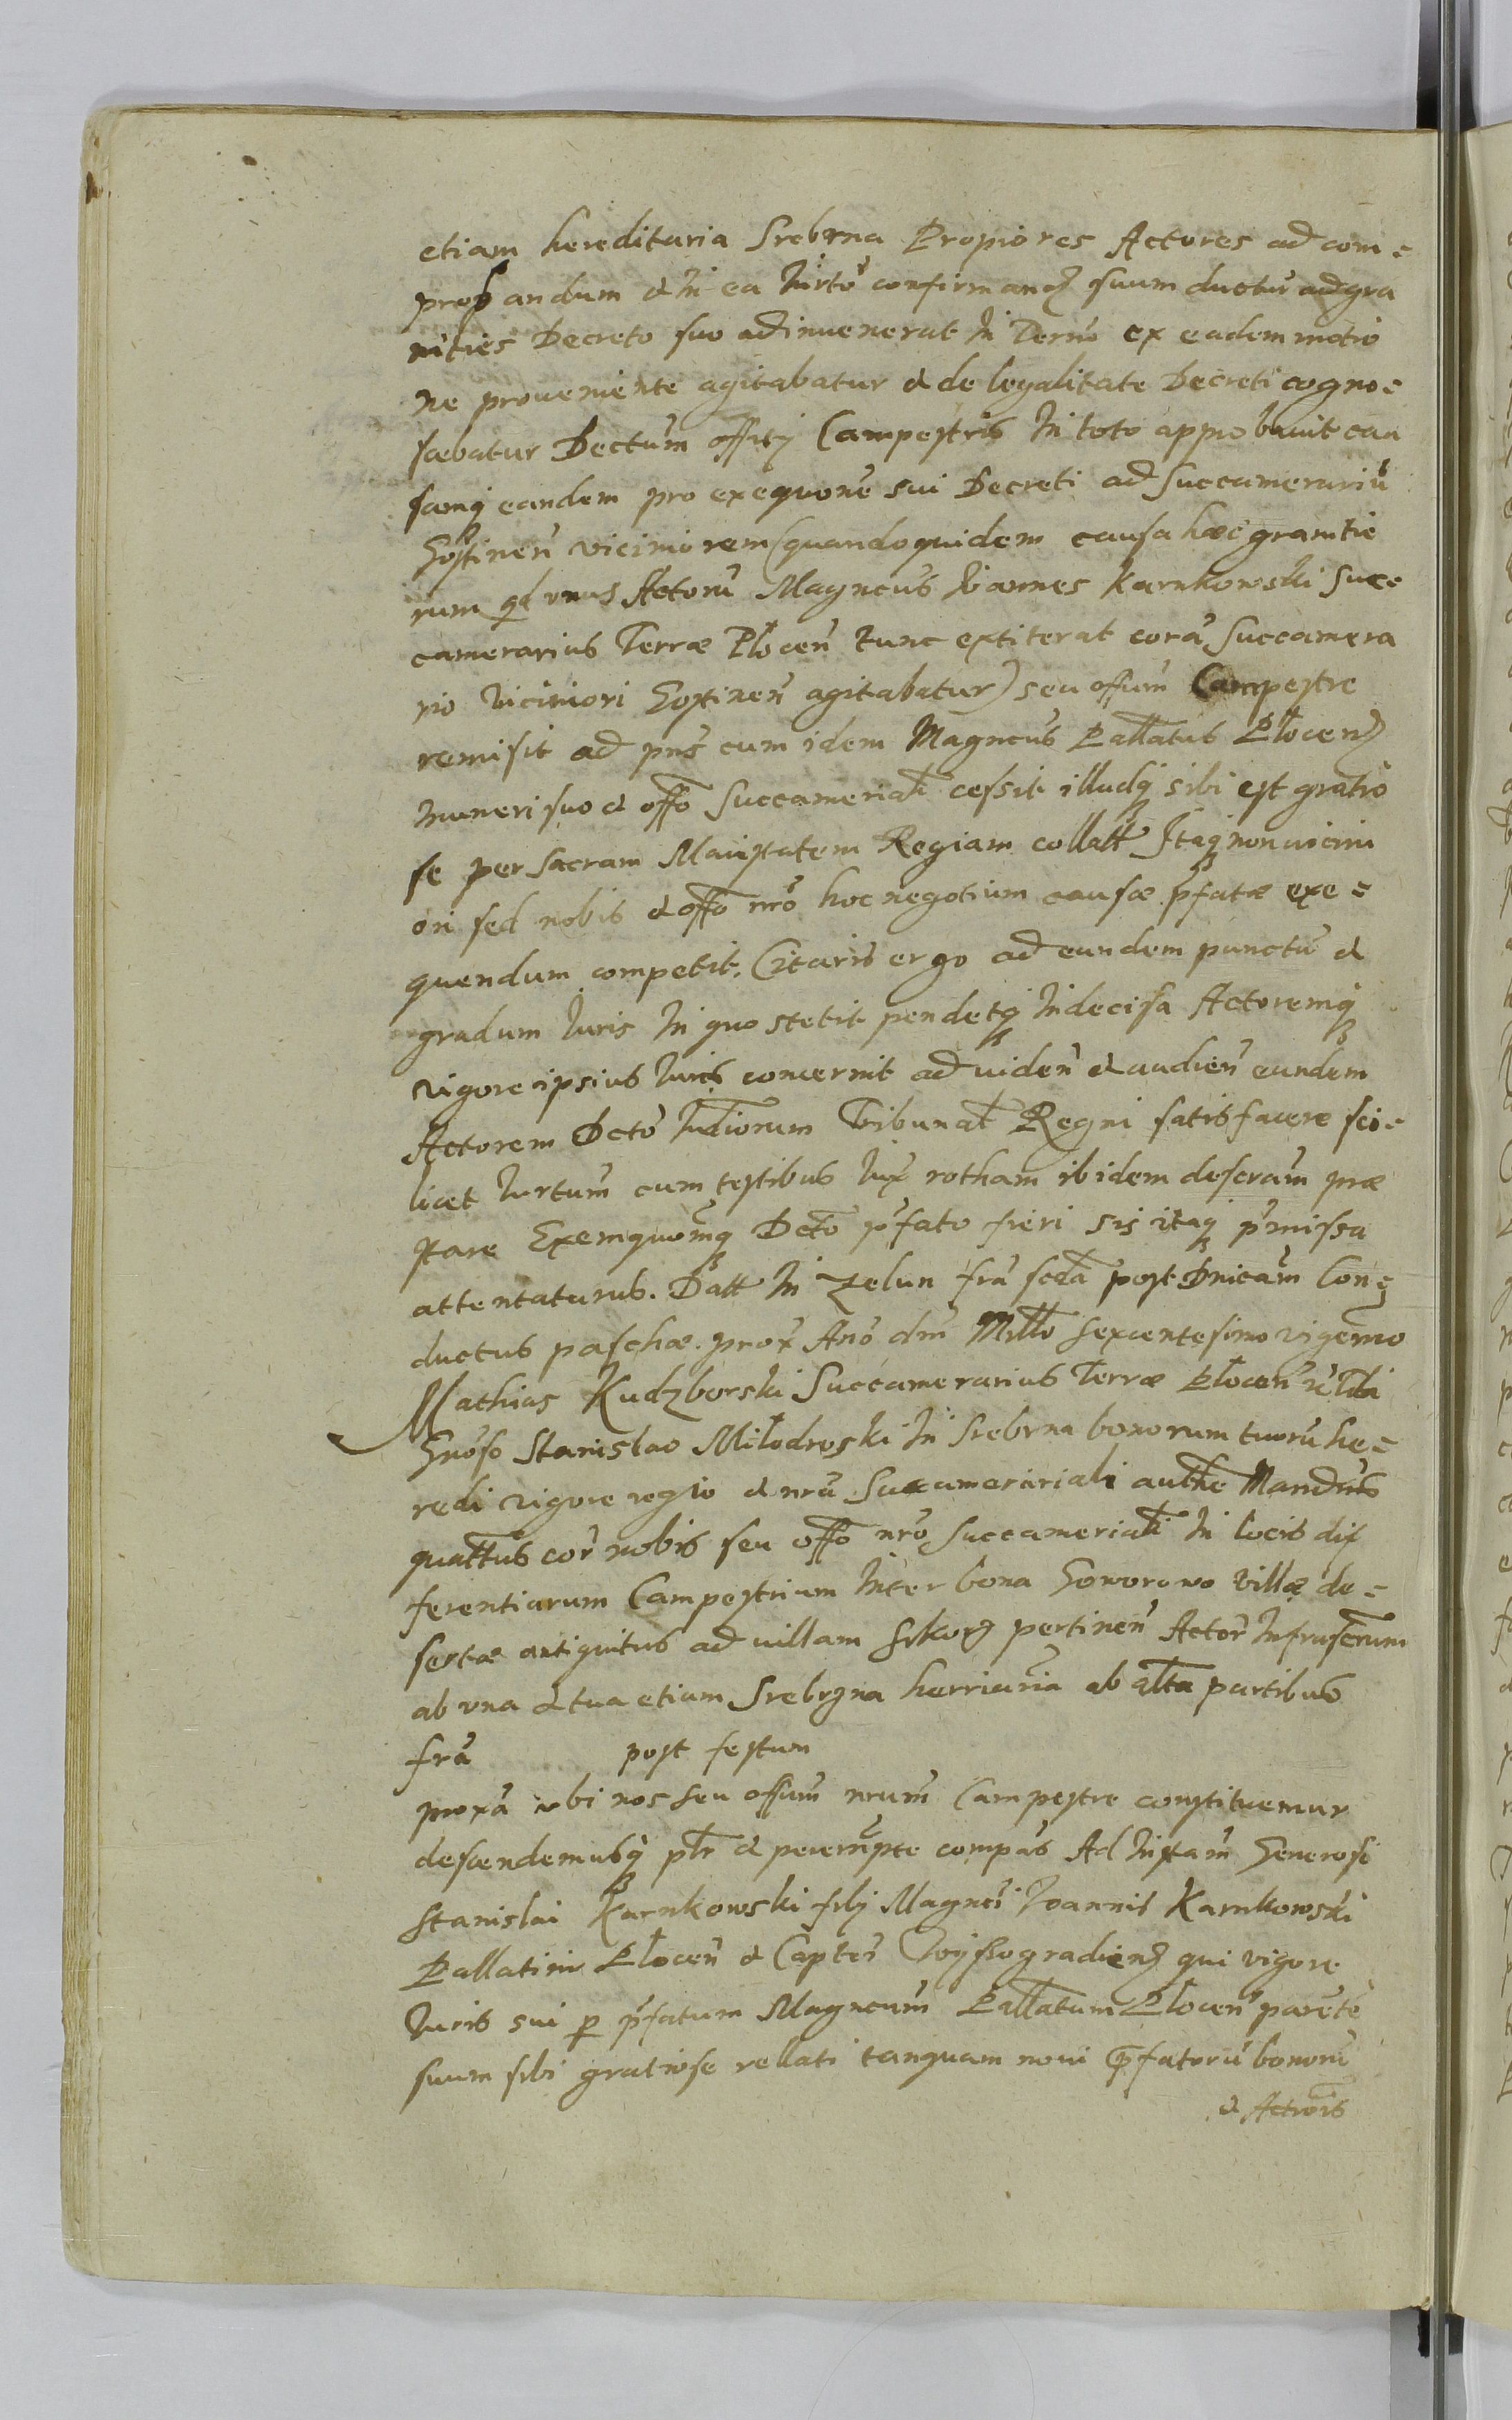 etiam hereditaria Srebrna Propiores Actores ad com=
probandum & in ea Iurto confirmand suum ductū ad gra
nities Decreto suo adinvenerat in Terno ex eadem motio
ne proveniente agitabatur & de legalitate Decreti cogno=
scebatur Dectum offitij Campestris In toto approbavit cau
samq eandem pro exequone sui Decreti ad Succamerariū
Gostinen viciniorem (quandoquidem causa hæc granitie
rum qd unus Actorū Magncus Ioannes Karnkowski Suc=
camerarius Terræ Płocen tunc extiterat corā Succamera
rio viciniori Gostinen agitabatur) seu offum Campestre
remisit ad pns cum idem Magncus Pallatus Płocen
muneri suo & offo Succameriali cessit illudq sibi est gratio
se per Sacram Maiestatem Regiam collatt Itaq non vicini
ori sed nobis & offo nro hoc negotium causæ pfatæ exe=
quendum competit. Citaris ergo ad eundem punctū &
gradum Iuris In quo stetit pendetq Indecisa Actoremq
vigore ipsius Iuris concernit ad viden & audien eundem
Actorem Dcto Iudiorum Tribunal Regni satisfacere sci=
licet Iurtum cum testibus Iux rotham ibidem descram præ
stare Exemquomq Dcto pfato fieri sis itaq pmissa
attentaturus. Datt In Zelun fra scda post Dnicam Con=
ductus paschæ prox Ano dni Millo Sexcentesimo vigemo
Mathias Kudzborski Succamerarius Terræ Płocen Tibi
Gnoso Stanislao Miłodroski In Srebrna bonorum tuorū he=
redi vigore regio & nra Succamerariali authe Mandmus
quattus cor nobis seu offo nro Succameriali In locis dif
ferentiarum Campestrium Inter bona Goworowo villæ de=
sertæ antiquitus ad villam Sikorz pertinen Actor Infrascrum
ab una & tua etiam Srebrzna herriaria ab alta partibus
fra post festum
proxa ubi nos seu offum nrum Campestre constituemur
descendemusq plr & perempte compas Ad Instam Generosi
Stanislai Karnkowski filij Magnci Ioannis Karnkowski
Pallatini Płocen & Capten Wyssogradien qui vigore
Iuris sui p pfatum Magncum Pallatum Płocen parente
suum sibi gratiose rellati tanquam novi pfatorū bonorū
& Actionis